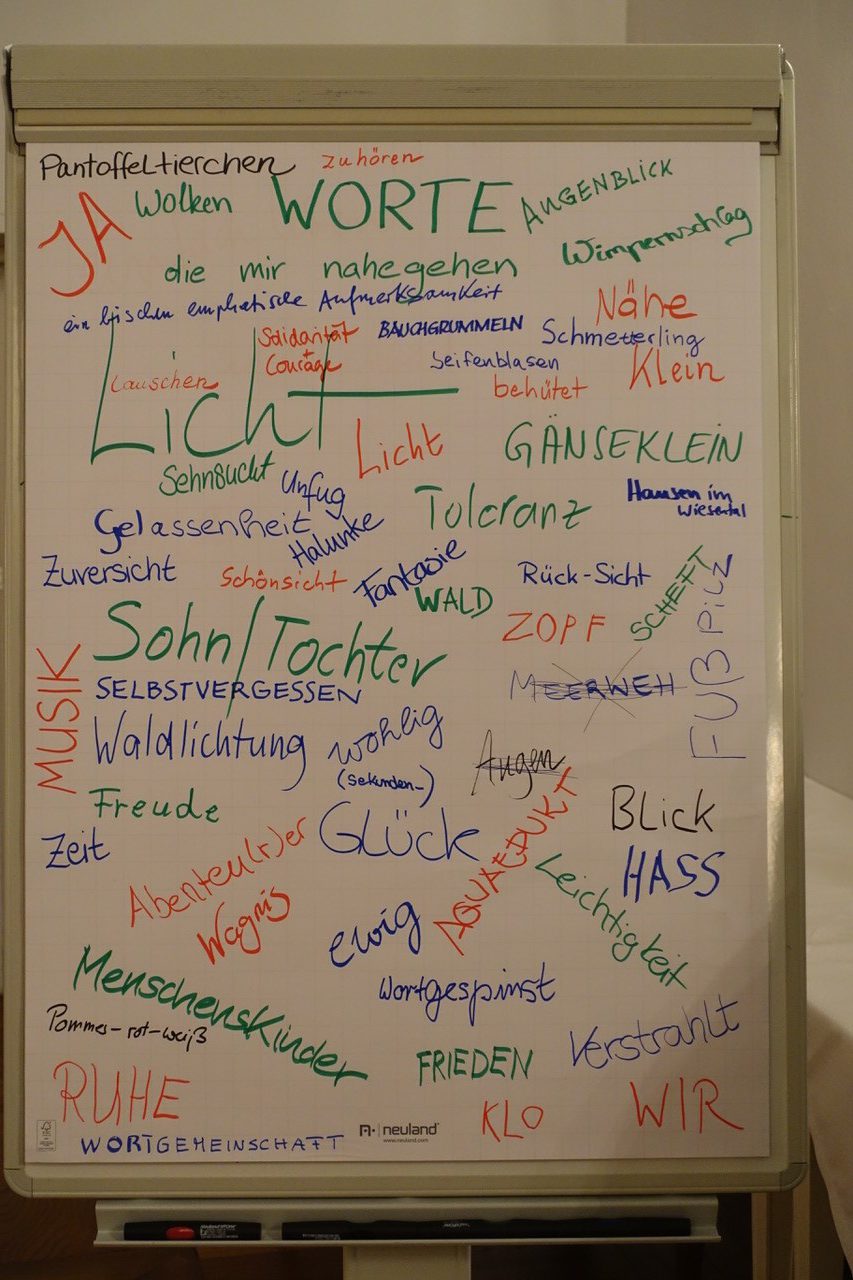 Pantoffeltierchen
zuhören
JA
Wolken
WORTE
AUGENBLICK
Wimpernschlag
die mir nahegehen
ein bischen emphatische Aufmerksamkeit
Nähe
Solidarität
+
Courage
BAUCHGRUMMELN
Schmetterling
Seifenblasen
Klein
Lauschen
behütet
Licht
Licht
GÄNSEKLEIN
Sehnsucht
Unfug
Toleranz
Hausen im
Wiesental
Gelassenheit
Halunke
Zuversicht
Schönsicht
Fantasie
WALD
Rück-Sicht
SCHEFT
FUß PiLZ
ZOPF
Sohn/Tochter
MUSIK
SELBSTVERGESSEN
MEERWEH
Waldlichtung
wohlig
(Sekunden-)
Augen
Freude
GLÜCK
BLick
Zeit
Abenteu(r)er
AQUAEDUKT
HASS
Wagnis
Leichtigkeit
ewig
Menschenskinder
Wortgespinst
Pommes-rot-weiß
Verstrahlt
FRIEDEN
RUHE
KLO
WIR
neuland
www.neuland.com
WORTGEMEINSCHAFT